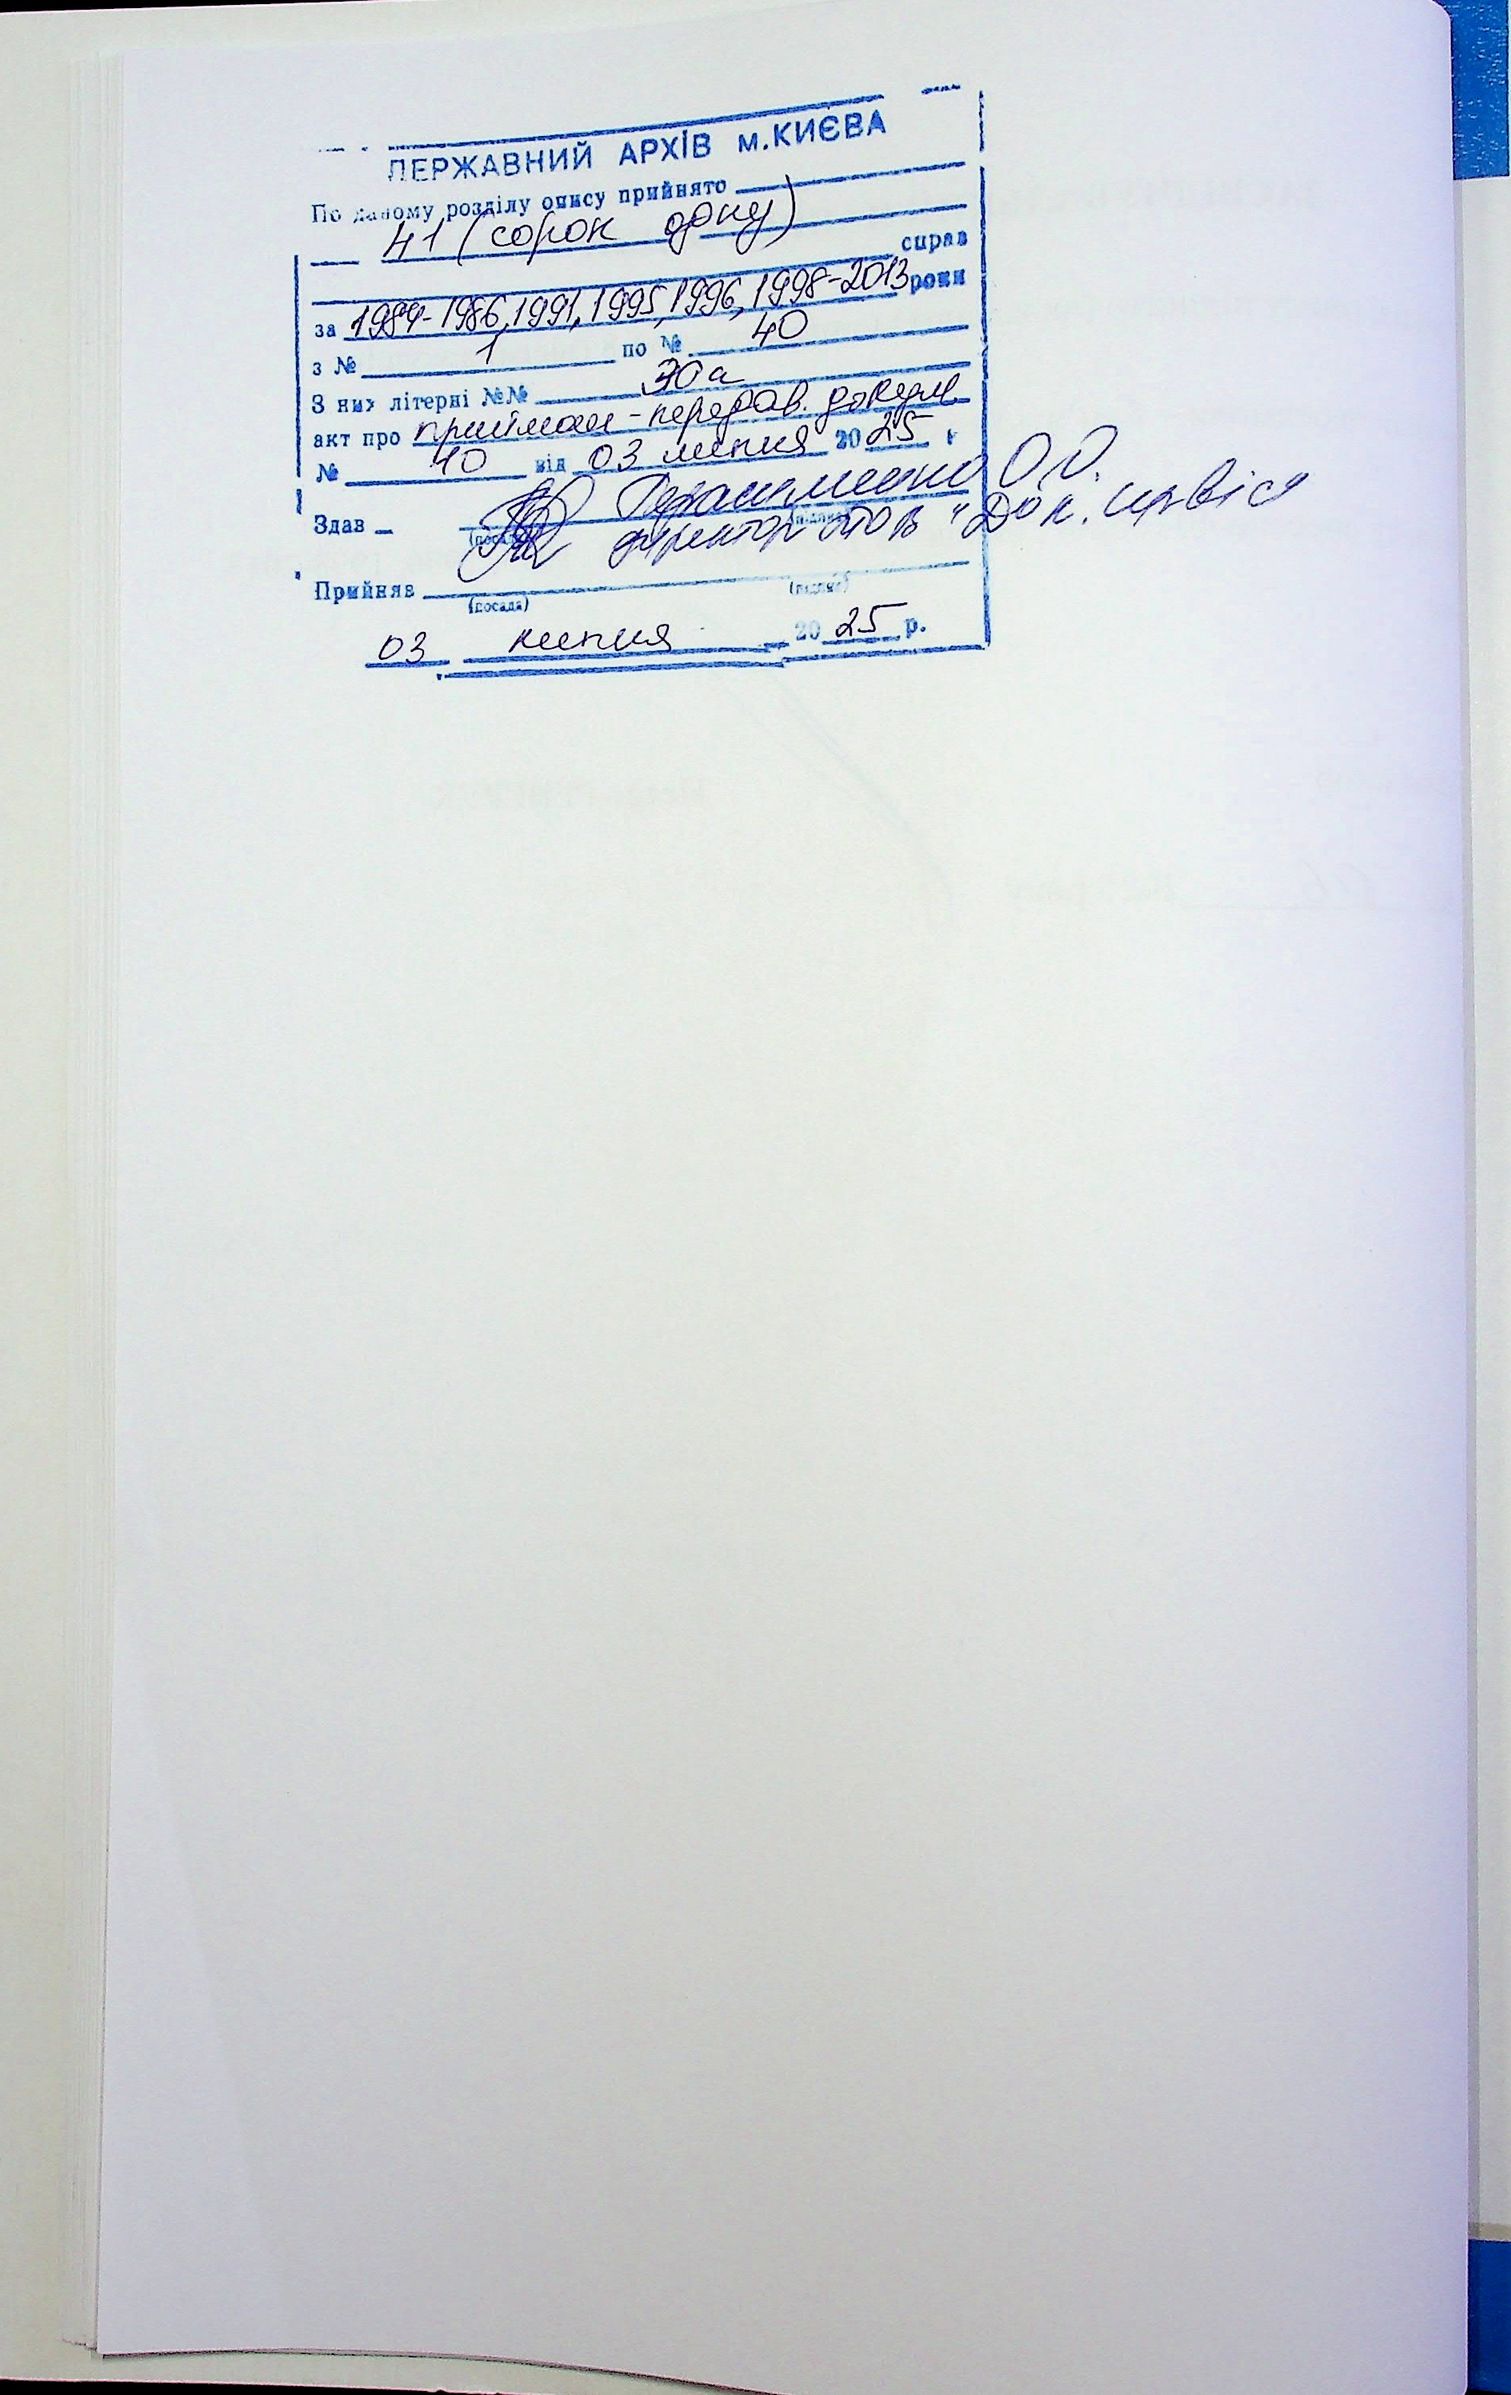 ДЕРЖАВНИЙ АРХІВ м.КИЄВА
По даному розділу опису прийнято
41 (сорок одну)
справ
за 1984-1986, 1991, 1995, 1996, 1998-2013 роки
з № 1 по № 40
З них літерні №№ 30а
акт про прийман-передав. докум
№ 10 від 03 липня 2025 р
Здав Герасименко О.О.
(посада) (підпис)
директор ТОВ "Док. сервіс"
Прийняв
(посада) (підпис)
03 липня 2025 р.